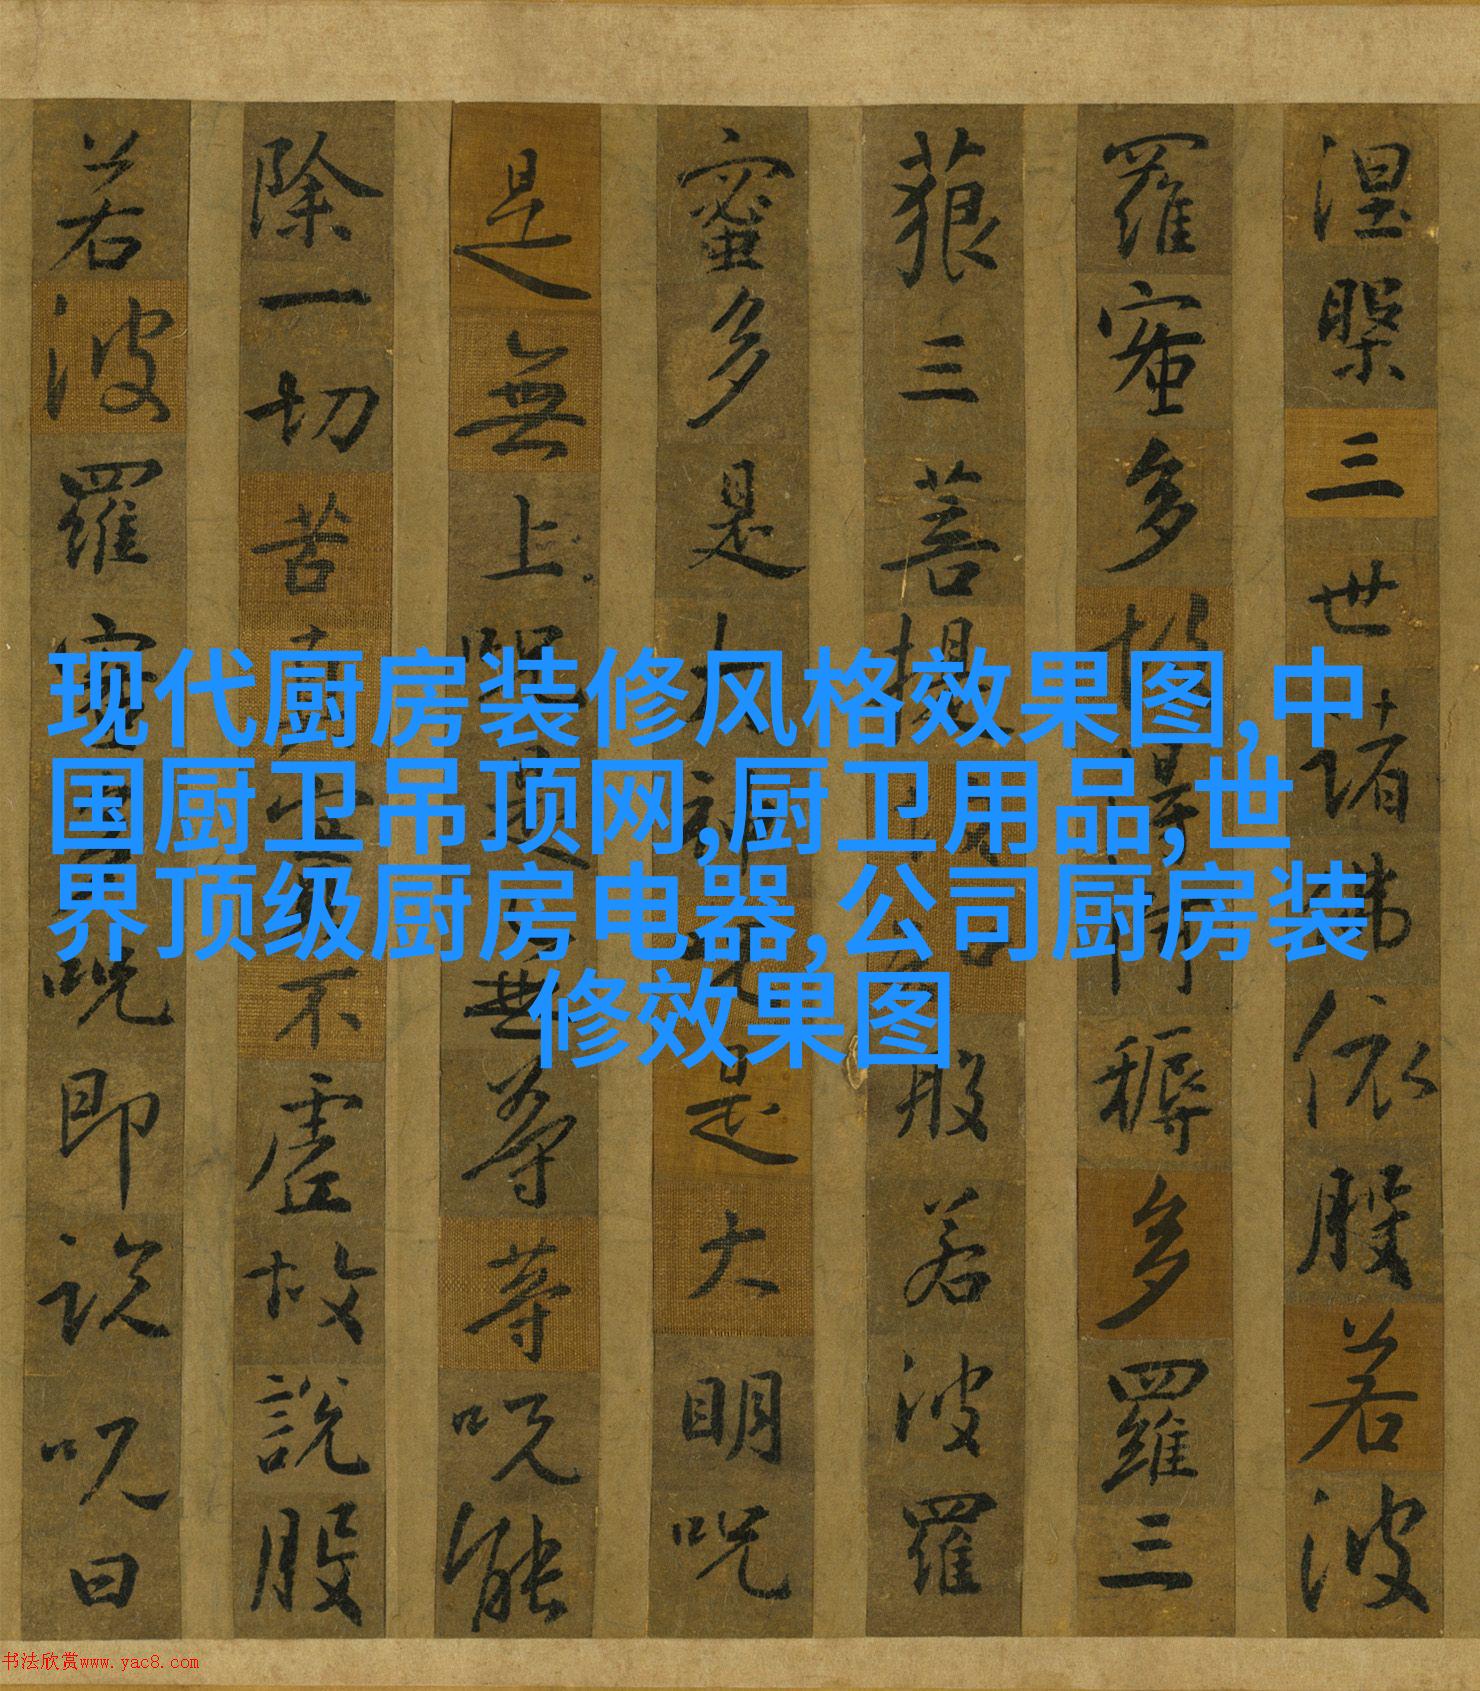 涅槃三世諸佛依般若波
羅蜜多故得阿耨多羅三
藐三菩提故知般若波羅
蜜多是大神咒是大明咒
是無上咒是無等等咒能
除一切苦真實不虛故說般
若波羅蜜多咒即說咒曰
现代厨房装修风格效果图,中
国厨卫吊顶网,厨卫用品,世
界顶级厨房电器,公司厨房装
修效果图
书法欣赏www.yac8.com